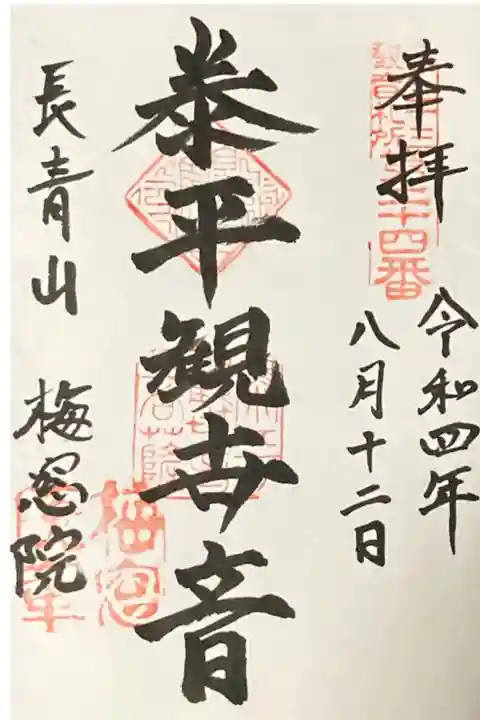 奉拝
二十四番
令和四年
八月十二日
泰平観世音
長青山 梅窓院